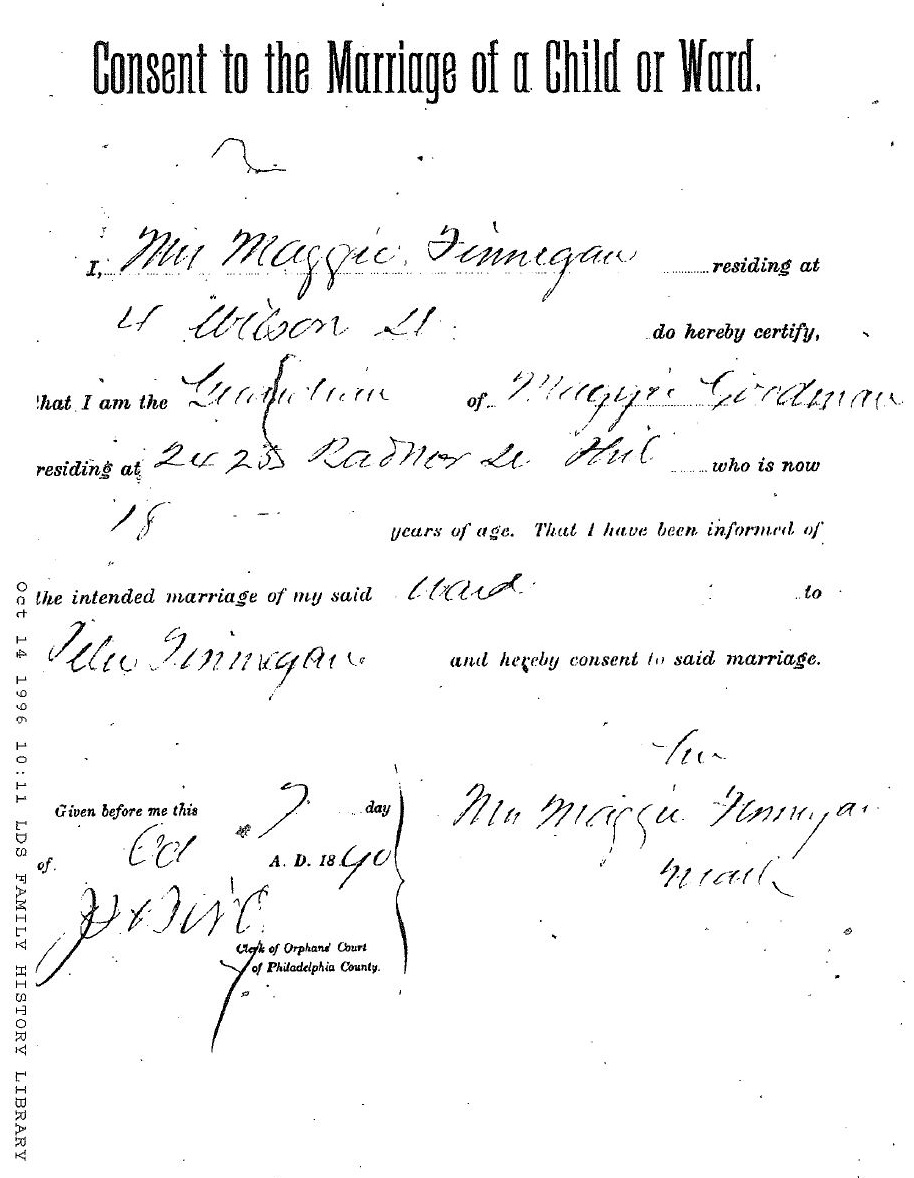 Consent to the Marriage of a Child or Ward.
I, Mrs Maggie Finnegan residing at
4 Wilson St do hereby certify,
that I am the Guardian of Maggie Goodman
residing at 2425 Radnor St Phil who is now
18 years of age. That I have been informed of
the intended marriage of my said Ward to
Peter Finnegan and hereby consent to said marriage.
her
Given before me this 7 day
Mrs Maggie Finnegan
of Oct A. D. 1890
mark
Clerk of Orphans' Court
of Philadelphia County.
Oct 14 1996 10:11 LDS FAMILY HISTORY LIBRARY